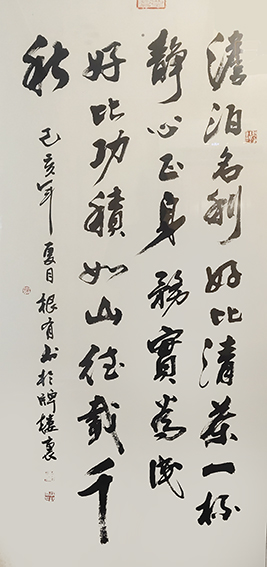 澹泊名利好比清茶一杯
靜心正身務實
好比功積如山德載千
秋
己亥年夏月根有书於牌樓裏